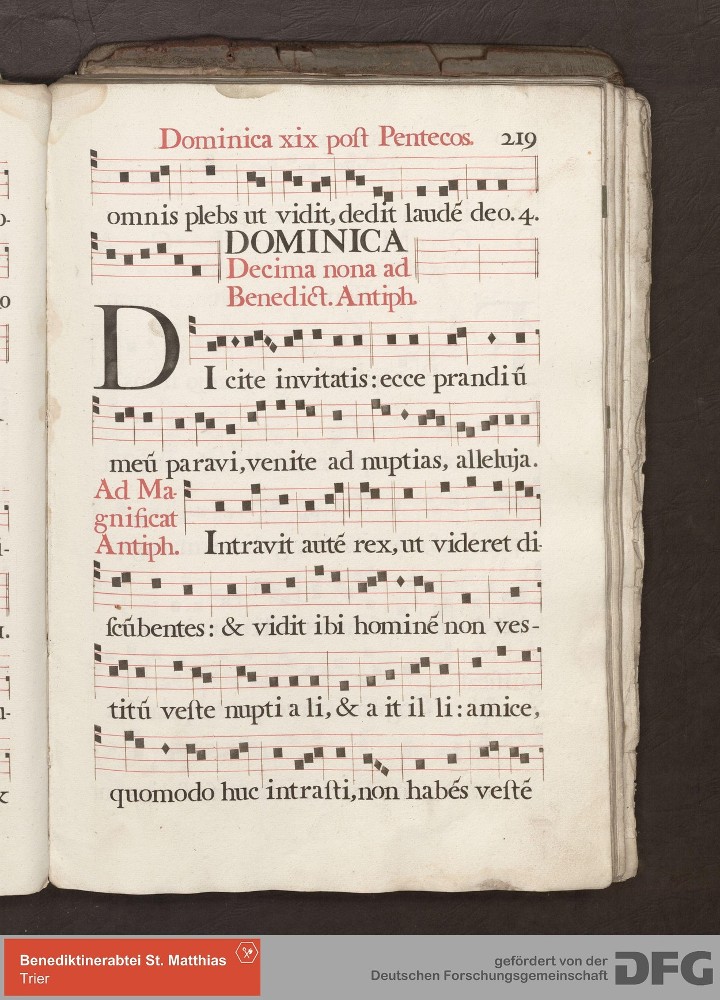 Dominica xix poſt Pentecos. 219
omnis plebs ut vidit, dedit laudē deo. 4.
DOMINICA
Decima nona ad
Benedict. Antiph.
DIcite invitatis: ecce prandiū
meū paravi, venite ad nuptias, alleluja.
Ad Ma-
gnificat
Antiph.
Intravit autē rex, ut videret di-
ſcūbentes: & vidit ibi hominē non ves-
titū veſte nupti a li, & a it il li: amice,
quomodo huc intraſti, non habēs veſtē
Benediktinerabtei St. Matthias
Trier
gefördert von der
Deutschen Forschungsgemeinschaft
DFG